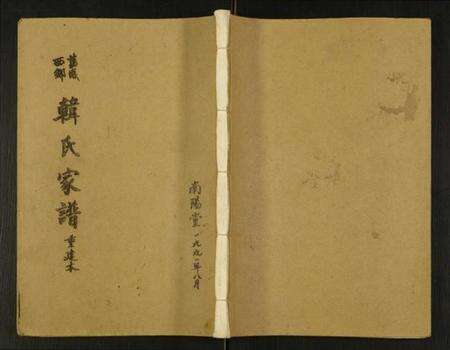 西鄉
韓氏家譜重建本
南陽堂一九九一年八月